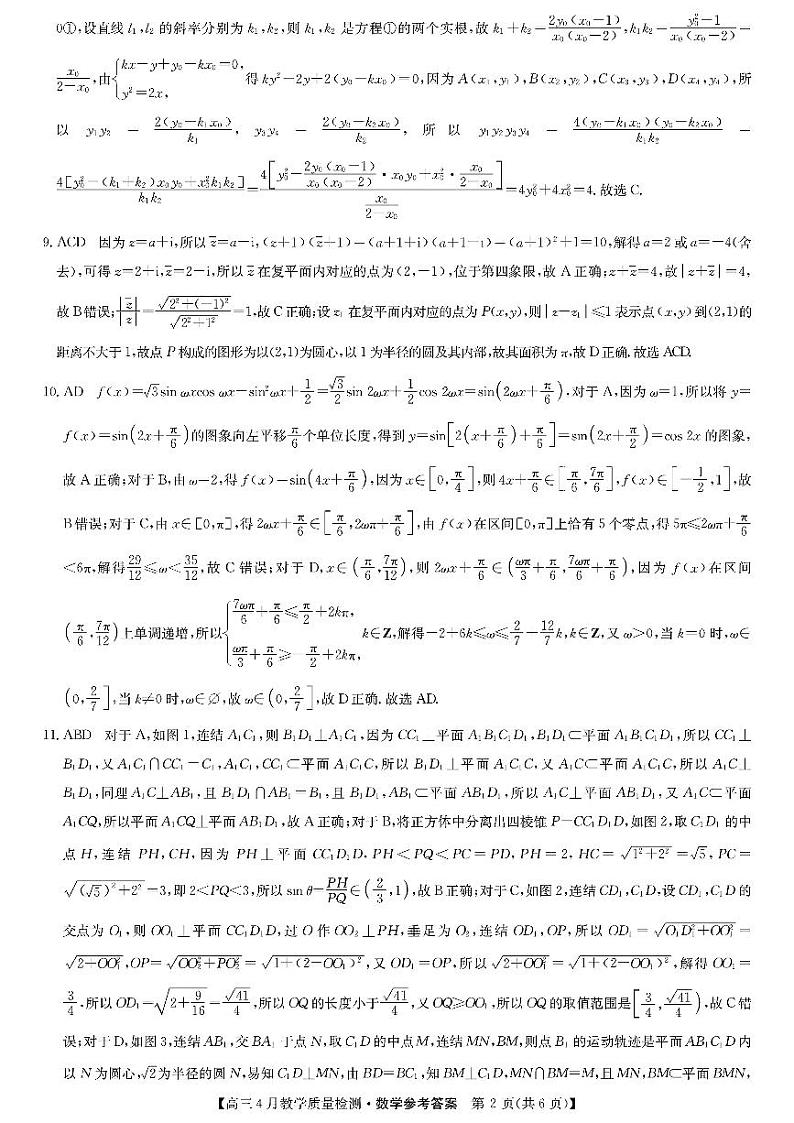 0①,设直线 l₁,l₂ 的斜率分别为 k₁,k₂,则 k₁,k₂ 是方程①的两个实根,故 k₁+k₂=2y₀(x₀-1)/x₀(x₀-2),k₁k₂=(y₀²-1)/x₀(x₀-2)=
x₀/(2-x₀),由{kx-y+y₀-kx₀=0, y²=2x, 得 ky²-2y+2(y₀-kx₀)=0,因为 A(x₁,y₁),B(x₂,y₂),C(x₃,y₃),D(x₄,y₄),所
以 y₁y₂ = 2(y₀-k₁x₀)/k₁, y₃y₄ = 2(y₀-k₂x₀)/k₂, 所 以 y₁y₂y₃y₄ = 4(y₀-k₁x₀)(y₀-k₂x₀)/k₁k₂ =
4[y₀²-(k₁+k₂)x₀y₀+x₀²k₁k₂]/k₁k₂ = 4[y₀²-2y₀(x₀-1)/x₀(x₀-2)·x₀y₀+x₀²·x₀/(2-x₀)]/(x₀/(2-x₀)) =4y₀²+4x₀²=4. 故选 C.
9. ACD 因为 z=a+i,所以 z̄=a-i,(z+1)(z̄+1)=(a+1+i)(a+1-i)=(a+1)²+1=10,解得 a=2 或 a=-4(舍
去),可得 z=2+i,z̄=2-i,所以 z̄ 在复平面内对应的点为(2,-1),位于第四象限,故 A 正确;z+z̄=4,故|z+z̄|=4,
故 B 错误;|z̄/z|=√(2²+(-1)²)/√(2²+1²)=1,故 C 正确;设 z₁ 在复平面内对应的点为 P(x,y),则|z-z₁|≤1 表示点(x,y)到(2,1)的
距离不大于 1,故点 P 构成的图形为以(2,1)为圆心,以 1 为半径的圆及其内部,故其面积为 π,故 D 正确. 故选 ACD.
10. AD f(x)=√3sin ωxcos ωx-sin²ωx+1/2=√3/2 sin 2ωx+1/2 cos 2ωx=sin(2ωx+π/6),对于 A,因为 ω=1,所以将 y=
f(x)=sin(2x+π/6)的图象向左平移π/6个单位长度,得到 y=sin[2(x+π/6)+π/6]=sin(2x+π/2)=cos 2x 的图象,
故 A 正确;对于 B,由 ω=2,得 f(x)=sin(4x+π/6),因为 x∈[0,π/4],则 4x+π/6∈[π/6,7π/6],f(x)∈[-1/2,1],故
B 错误;对于 C,由 x∈[0,π],得 2ωx+π/6∈[π/6,2ωπ+π/6],由 f(x)在区间[0,π]上恰有 5 个零点,得 5π≤2ωπ+π/6
<6π,解得29/12≤ω<35/12,故 C 错误;对于 D,x∈(π/6,7π/12),则 2ωx+π/6∈(ωπ/3+π/6,7ωπ/6+π/6),因为 f(x)在区间
(π/6,7π/12)上单调递增,所以{7ωπ/6+π/6≤π/2+2kπ, ωπ/3+π/6≥-π/2+2kπ, k∈Z,解得-2+6k≤ω≤2/7-12/7k,k∈Z,又 ω>0,当 k=0 时,ω∈
(0,2/7],当 k≠0 时,ω∈∅,故 ω∈(0,2/7],故 D 正确. 故选 AD.
11. ABD 对于 A,如图 1,连结 A₁C₁,则 B₁D₁⊥A₁C₁,因为 CC₁⊥平面 A₁B₁C₁D₁,B₁D₁⊂平面 A₁B₁C₁D₁,所以 CC₁⊥
B₁D₁,又 A₁C₁∩CC₁=C₁,A₁C₁,CC₁⊂平面 A₁C₁C,所以 B₁D₁⊥平面 A₁C₁C,又 A₁C⊂平面 A₁C₁C,所以 A₁C⊥
B₁D₁,同理 A₁C⊥AB₁,且 B₁D₁∩AB₁=B₁,且 B₁D₁,AB₁⊂平面 AB₁D₁,所以 A₁C⊥平面 AB₁D₁,又 A₁C⊂平面
A₁CQ,所以平面 A₁CQ⊥平面 AB₁D₁,故 A 正确;对于 B,将正方体中分离出四棱锥 P-CC₁D₁D,如图 2,取 C₁D₁ 的中
点 H,连结 PH,CH,因为 PH⊥平面 CC₁D₁D,PH<PQ<PC=PD,PH=2,HC=√(1²+2²)=√5,PC=
√((√5)²+2²)=3,即 2<PQ<3,所以 sin θ=PH/PQ∈(2/3,1),故 B 正确;对于 C,如图 2,连结 CD₁,C₁D,设 CD₁,C₁D 的
交点为 O₁,则 OO₁⊥平面 CC₁D₁D,过 O 作 OO₂⊥PH,垂足为 O₂,连结 OD₁,OP,所以 OD₁=√(O₁D₁²+OO₁²)=
√(2+OO₁²),OP=√(OO₂²+PO₂²)=√(1+(2-OO₁)²),又 OD₁=OP,所以 √(2+OO₁²)=√(1+(2-OO₁)²),解得 OO₁=
3/4,所以 OD₁=√(2+9/16)=√41/4,所以 OQ 的长度小于√41/4,又 OQ≥OO₁,所以 OQ 的取值范围是[3/4,√41/4),故 C 错
误;对于 D,如图 3,连结 AB₁,交 BA₁ 于点 N,取 C₁D 的中点 M,连结 MN,BM,则点 B₁ 的运动轨迹是平面 AB₁C₁D 内
以 N 为圆心,√2为半径的圆 N,易知 C₁D⊥MN,由 BD=BC₁,知 BM⊥C₁D,MN∩BM=M,且 MN,BM⊂平面 BMN,
【高三 4 月教学质量检测·数学参考答案 第 2 页(共 6 页)】